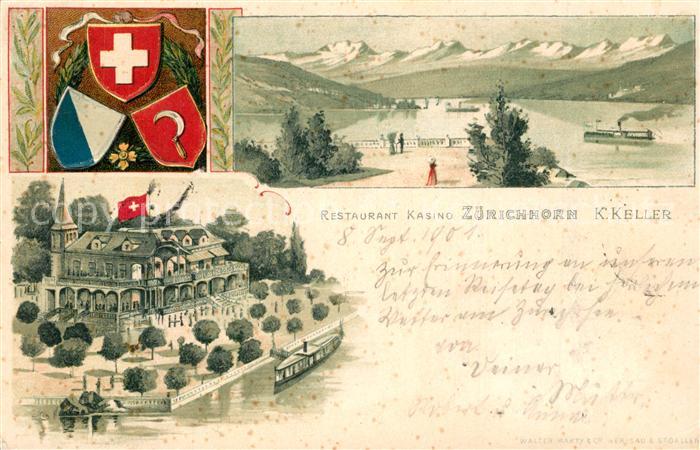 RESTAURANT KASINO ZÜRICHHORN K. KELLER
8 Sept. 1901.
Zur Erinnerung an unseren
letzten Reisetag bei
Wetter am Zürichsee.
von
Deiner
Mutter
WALTER MARTY & CO. HERISAU & ST. GALLEN